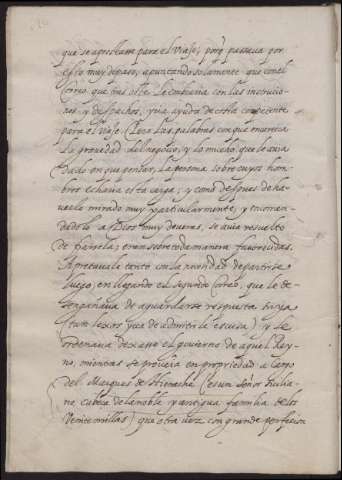 que se aprestasse para el viaje; porq̃ passaua por
esto muy depaso, apuntando solamente que con el
correo que tras este le embiaria con las instrucio-
nes y despachos, yria ayuda de costa competente
para el viaje. Pero las palabras con que encarecia
la grauedad del negocio, y lo mucho que le auia
dado en que pensar, la persona sobre cuyos hom-
bros echaria esta carga; y como despues de ha-
uerlo mirado muy particularmente, y encomen-
dadolo a Dios muy deueras, se auia resuelto
de fiarsela; eran sobre toda manera fauorecidas.
Apretauale tanto con la breuedad de partirse
luego, en llegando el segundo correo, que le de-
sengañaua de aguardarse respuesta suya
(tan lexos yua de admitir le escusa) y le
ordenaua dexasse el gouierno de aquel Rey-
no, mientras se proueya en propriedad a cargo
del Marques de (es un Señor Italia-
no cabeça de la noble y antigua familia de los
Veintemillas) que otra vez con grande perfecion